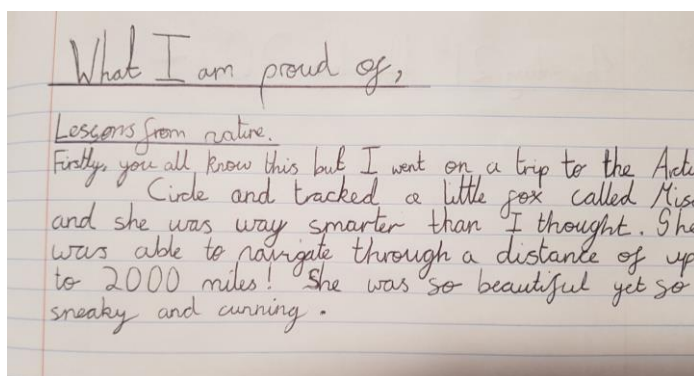 What I am proud of,
Lessons from nature.
Firstly, you all know this but I went on a trip to the
Circle and tracked a little fox called
and she was way smarter than I thought. She
was able to navigate through a distance of up
to 2000 miles! She was so beautiful yet so
sneaky and cunning.